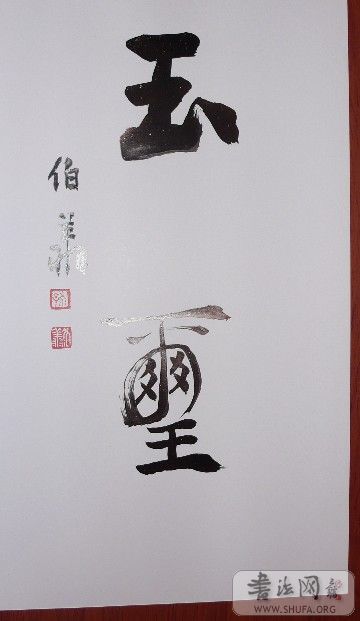 玉璽
伯
书法网
WWW.SHUFA.ORG